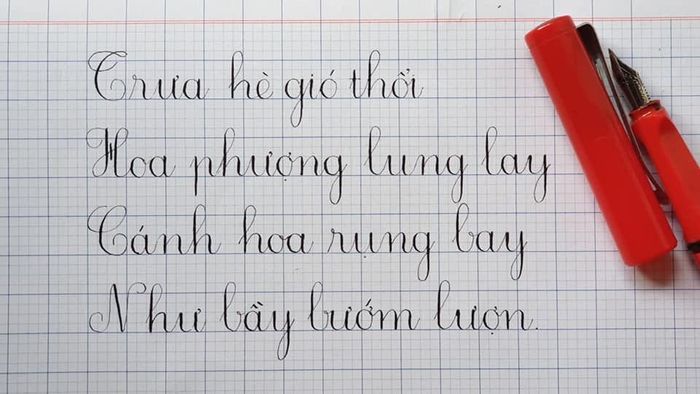 Trưa hè gió thổi
Hoa phượng lung lay
Cánh hoa rụng bay
Như bầy bướm lượn.